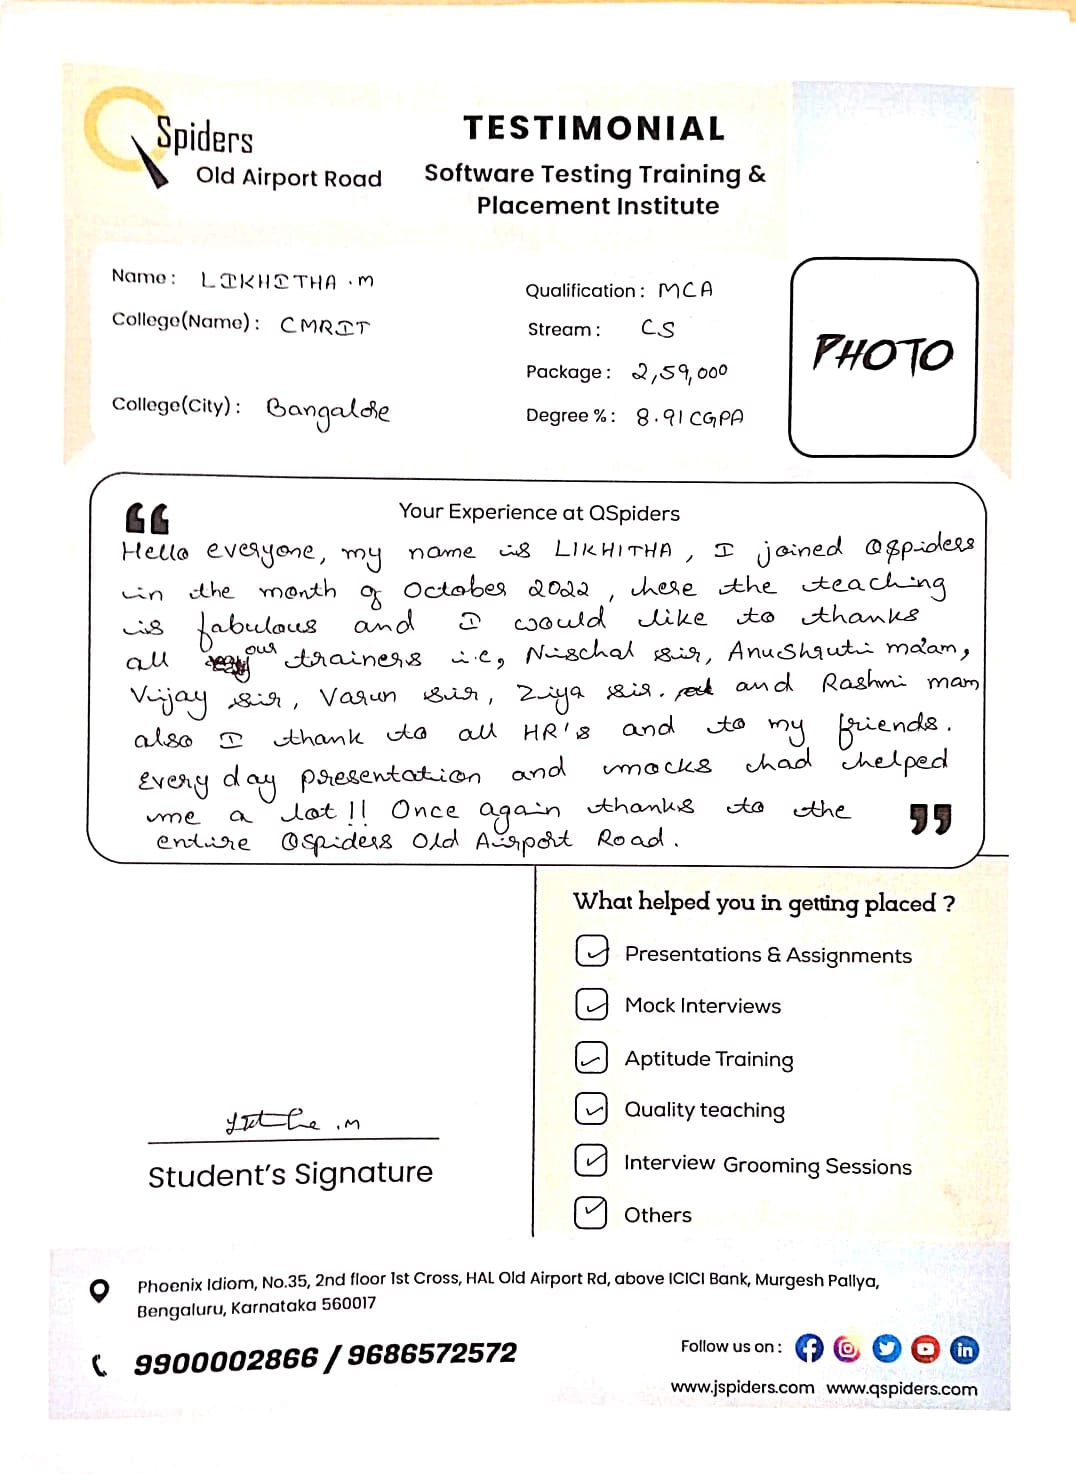 QSpiders
Old Airport Road
TESTIMONIAL
Software Testing Training &
Placement Institute
Name : LIKHITHA . M
College(Name) : CMRIT
College(City) : Bangalore
Qualification : MCA
Stream : CS
Package : 2,59,000
Degree % : 8.91 CGPA
PHOTO
Your Experience at QSpiders
Hello everyone, my name is LIKHITHA, I joined QSpiders
in the month of October 2022, here the teaching
is fabulous and I would like to thanks
all our trainers i.e, Nischal sir, AnuShruti ma'am,
Vijay sir, Varun sir, Ziya sir. and Rashmi mam
also I thank to all HR's and to my friends.
Every day presentation and mocks had helped
me a lot!! Once again thanks to the
entire QSpiders Old Airport Road.
What helped you in getting placed ?
Presentations & Assignments
Mock Interviews
Aptitude Training
Quality teaching
Interview Grooming Sessions
Others
Student's Signature
Phoenix Idiom, No.35, 2nd floor 1st Cross, HAL Old Airport Rd, above ICICI Bank, Murgesh Pallya,
Bengaluru, Karnataka 560017
9900002866 / 9686572572
Follow us on :
www.jspiders.com www.qspiders.com